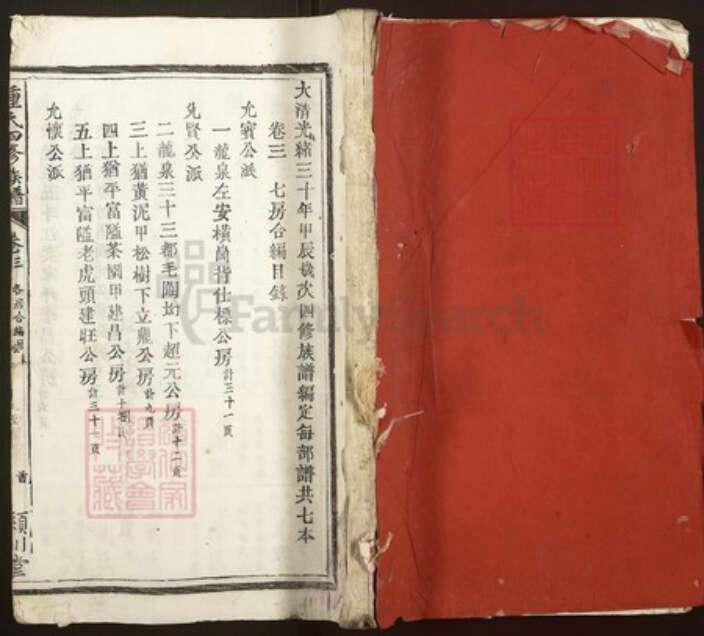 大清光緒三十年甲辰歲次四修族譜編定每部譜共七本
卷三 七房合編目錄
允寶公派
一龍泉左安橫崗背仕標公房計三十一頁
允賢公派
二龍泉三十三都毛園坳下超元公房計十二頁
三上猶黃泥甲松樹下立鼎公房計九頁
四上猶平富隘茶園甲建昌公房
五上猶平富隘老虎頭建旺公房計三十一頁
允懷公派
鍾氏四修族譜 卷三
首 潁川堂
FamilySearch